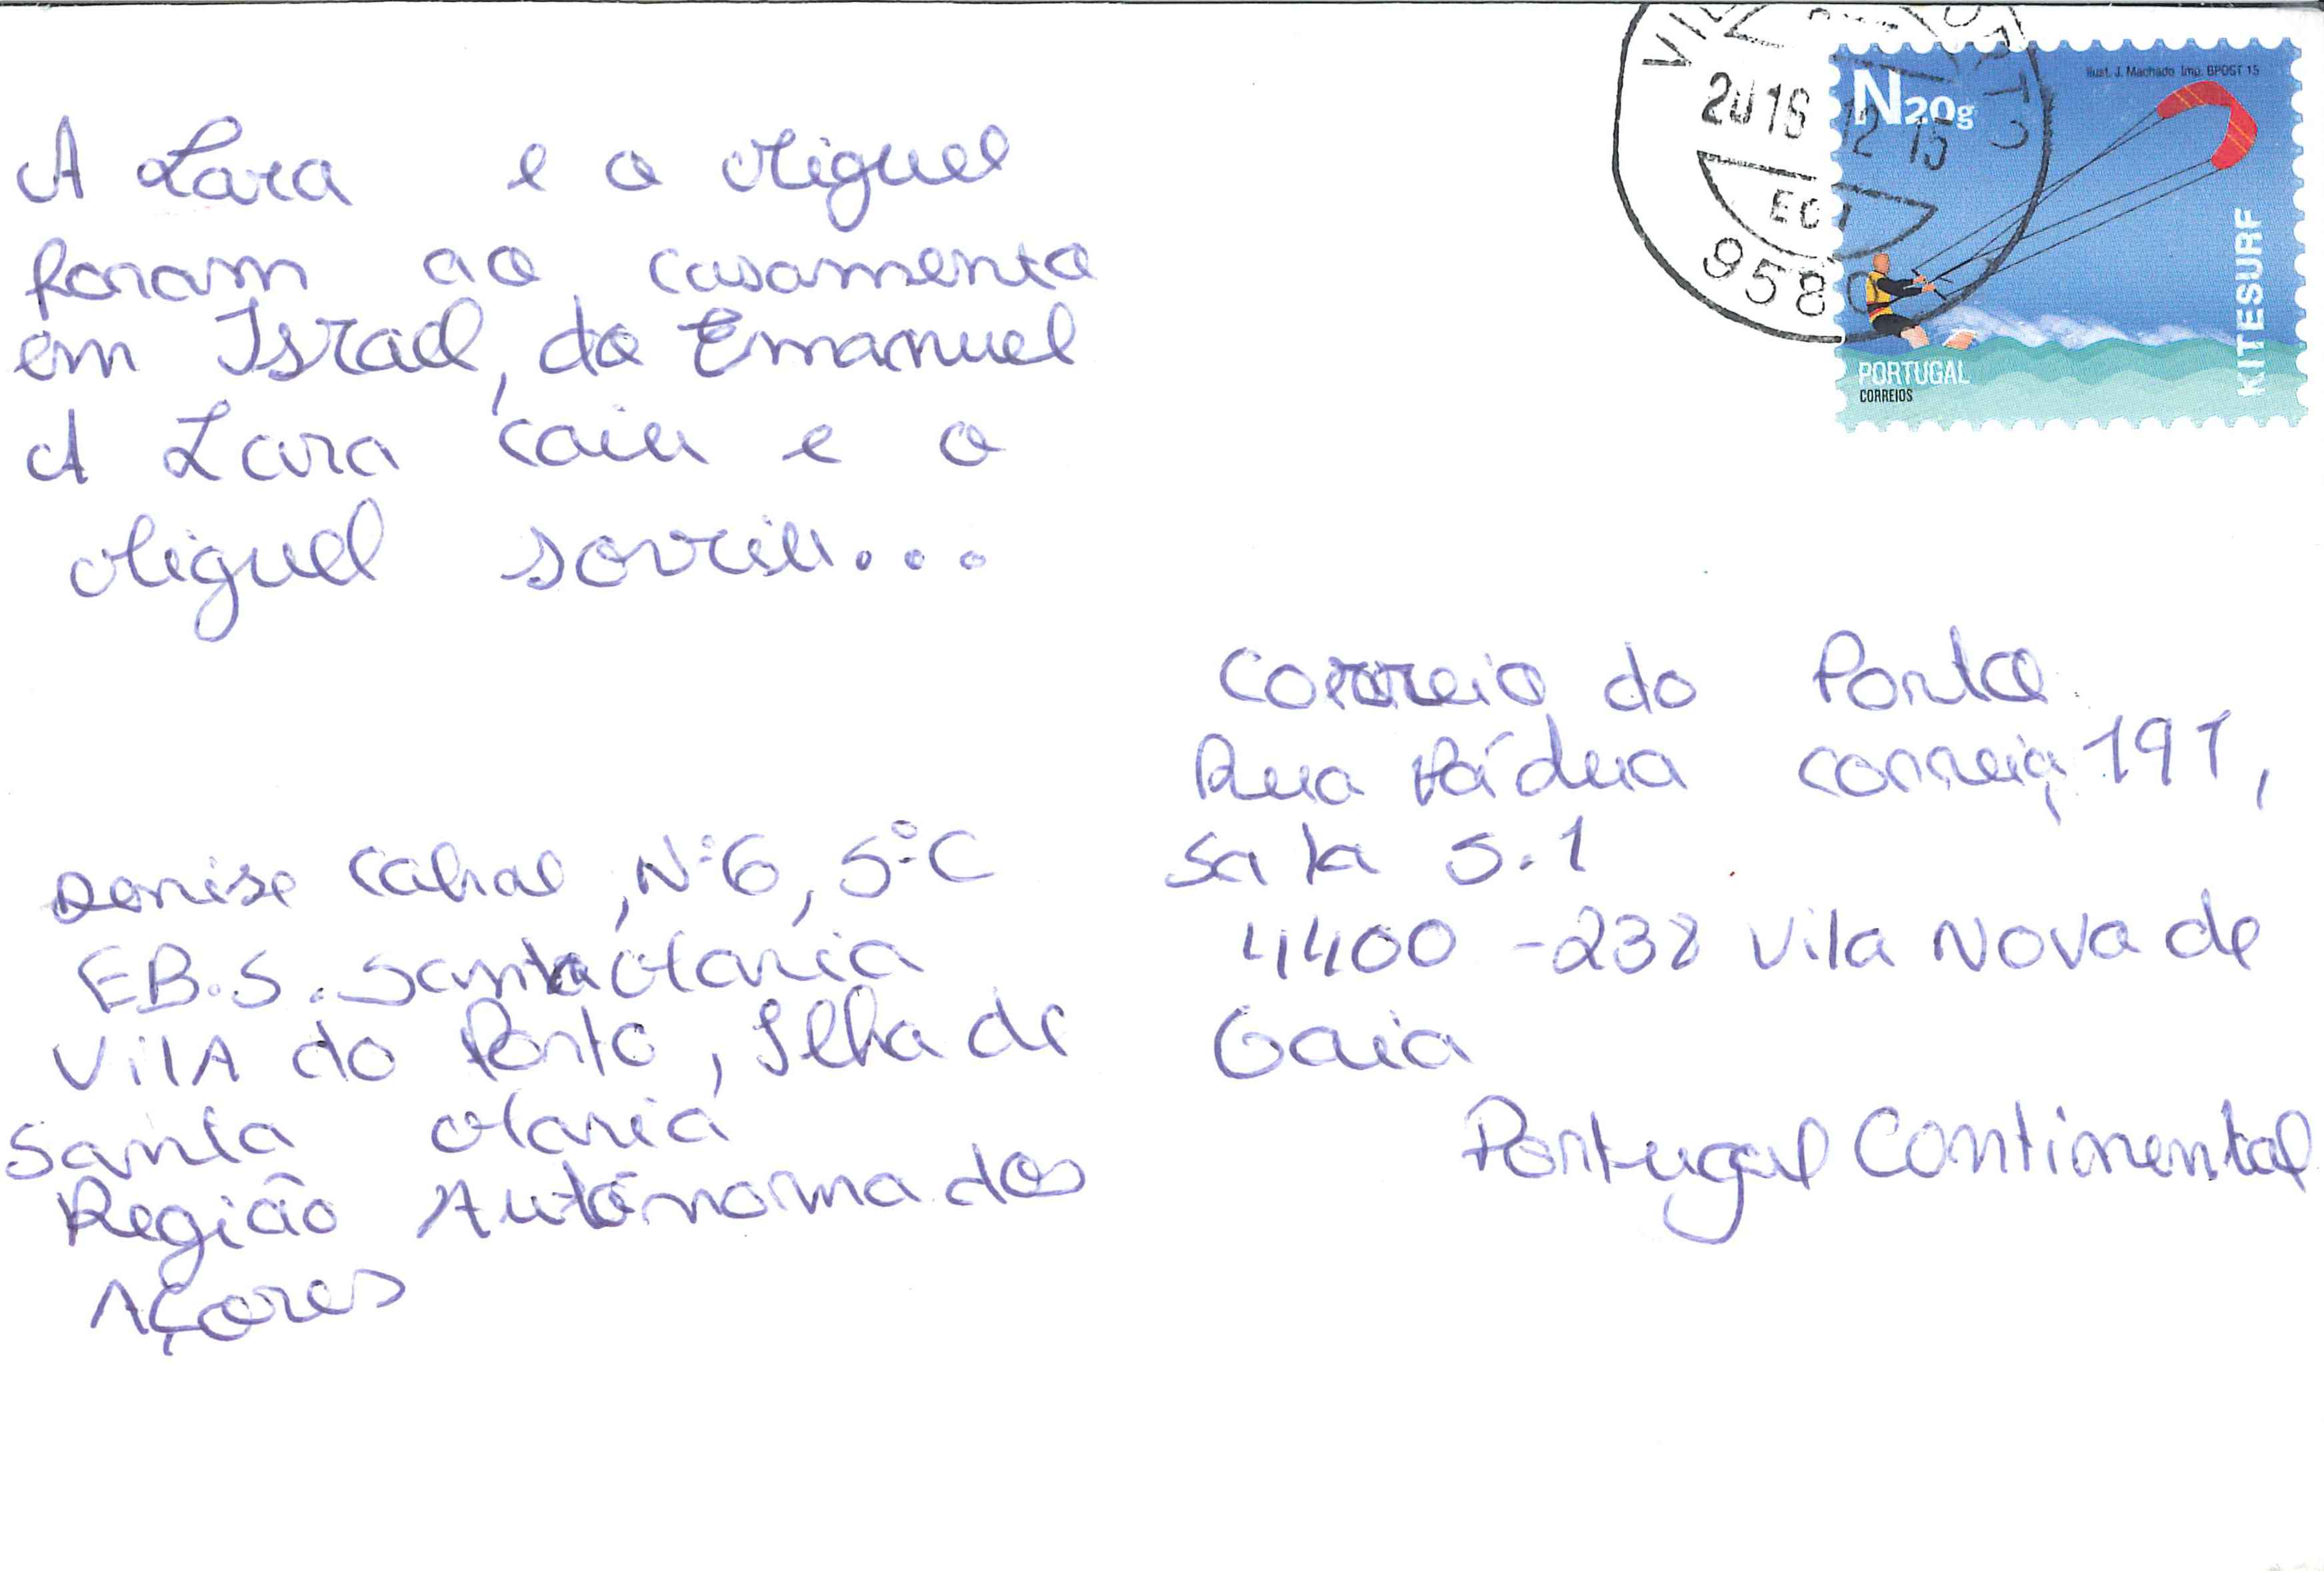 A Lara e o Miguel
foram ao casamento
em Israel, do Emanuel
A Lara caiu e o
Miguel sorriu...
Denise Cabral, Nº6, 5ºC
EB.S. Santa Maria
VilA do Porto, Ilha de
Santa Maria
Região Autónoma dos
Açores
2016 12 15
EC
958
N20g
Ilust. J. Machado Imp. BPOST 15
KITESURF
PORTUGAL
CORREIOS
Correio do Porto
Rua Pádua Correia, 191,
Sala 5.1
4400-238 Vila Nova de
Gaia
Portugal Continental